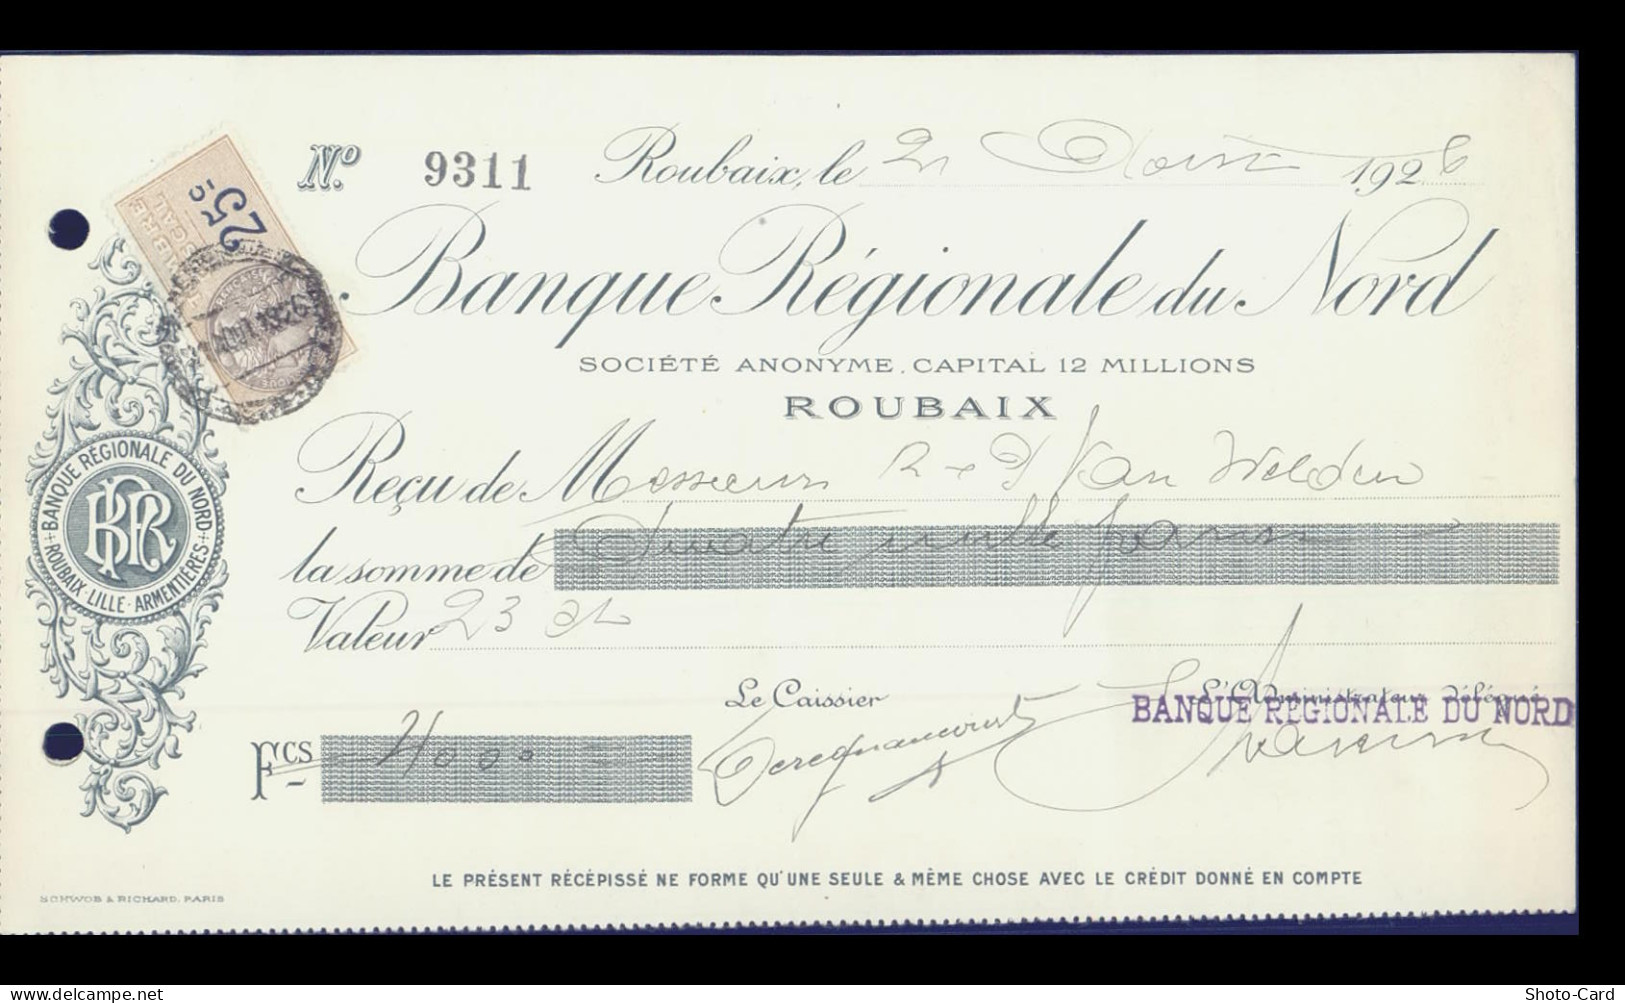 Nº 9311 Roubaix, le 21 Août 1926
25c
TIMBRE
FISCAL
Banque Régionale du Nord
SOCIÉTÉ ANONYME. CAPITAL 12 MILLIONS
ROUBAIX
Reçu de Messieurs Van Welden
la somme de Quatre mille francs
Valeur 23 ct
BANQUE RÉGIONALE DU NORD
ROUBAIX - LILLE - ARMENTIÈRES
BRN
Le Caissier L'Administrateur Délégué
BANQUE REGIONALE DU NORD
Fcs 4000
LE PRÉSENT RÉCÉPISSÉ NE FORME QU'UNE SEULE & MÊME CHOSE AVEC LE CRÉDIT DONNÉ EN COMPTE
SCHWOB & RICHARD, PARIS
www.delcampe.net Shoto-Card